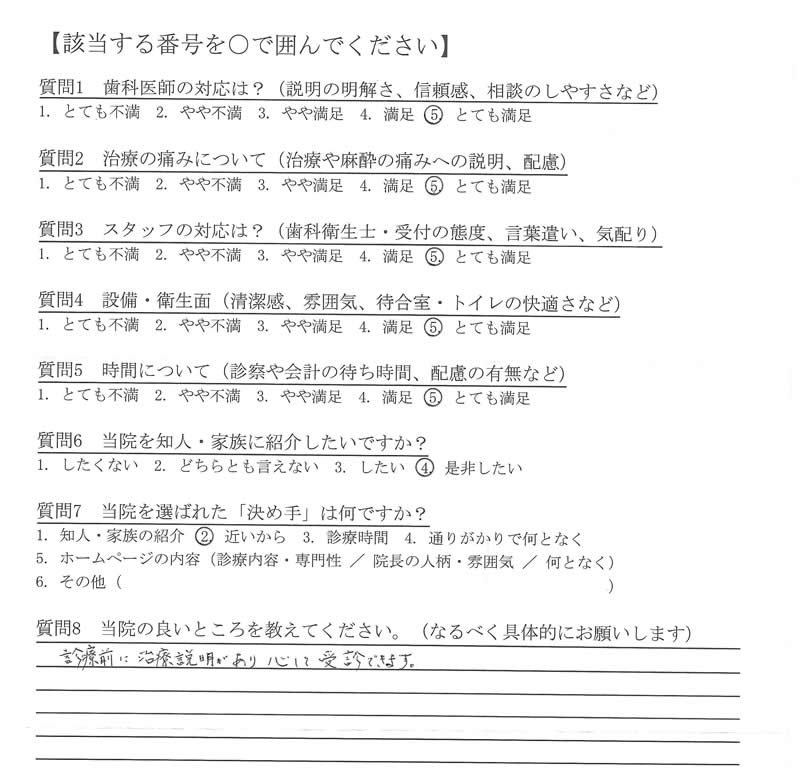 【該当する番号を〇で囲んでください】
質問1 歯科医師の対応は？（説明の明解さ、信頼感、相談のしやすさなど）
1. とても不満 2. やや不満 3. やや満足 4. 満足 ⑤ とても満足
質問2 治療の痛みについて（治療や麻酔の痛みへの説明、配慮）
1. とても不満 2. やや不満 3. やや満足 4. 満足 ⑤ とても満足
質問3 スタッフの対応は？（歯科衛生士・受付の態度、言葉遣い、気配り）
1. とても不満 2. やや不満 3. やや満足 4. 満足 ⑤ とても満足
質問4 設備・衛生面（清潔感、雰囲気、待合室・トイレの快適さなど）
1. とても不満 2. やや不満 3. やや満足 4. 満足 ⑤ とても満足
質問5 時間について（診察や会計の待ち時間、配慮の有無など）
1. とても不満 2. やや不満 3. やや満足 4. 満足 ⑤ とても満足
質問6 当院を知人・家族に紹介したいですか？
1. したくない 2. どちらとも言えない 3. したい ④ 是非したい
質問7 当院を選ばれた「決め手」は何ですか？
1. 知人・家族の紹介 ② 近いから 3. 診療時間 4. 通りがかりで何となく
5. ホームページの内容（診療内容・専門性 ／ 院長の人柄・雰囲気 ／ 何となく）
6. その他（ ）
質問8 当院の良いところを教えてください。（なるべく具体的にお願いします）
診療前に治療説明があり 心して受診できます。